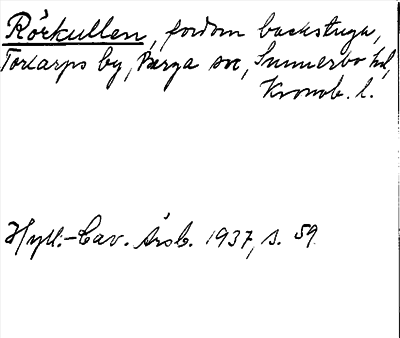 Rörkullen, fordom backstuga,
Torlarps by, Berga sn, Sunnerbo hd,
Kronob. l.
Hylt.-Cav. Årsb. 1937, s. 59